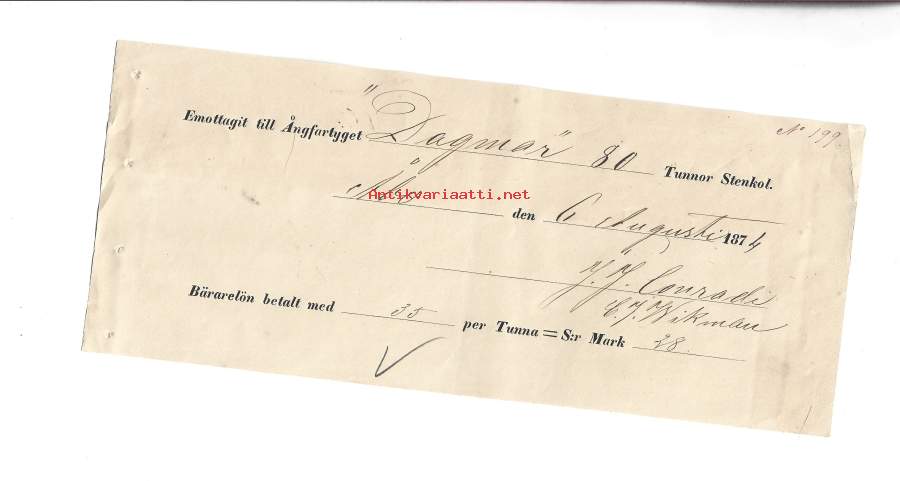 No 199.
Emottagit till Ångfartyget "Dagmar" 80 Tunnor Stenkol.
Åbo den 6 Augusti 1874
Antikvariaatti.net
J. J. Conradi
C. J. Wikman
Bärarelön betalt med 35 per Tunna = S:r Mark 28.